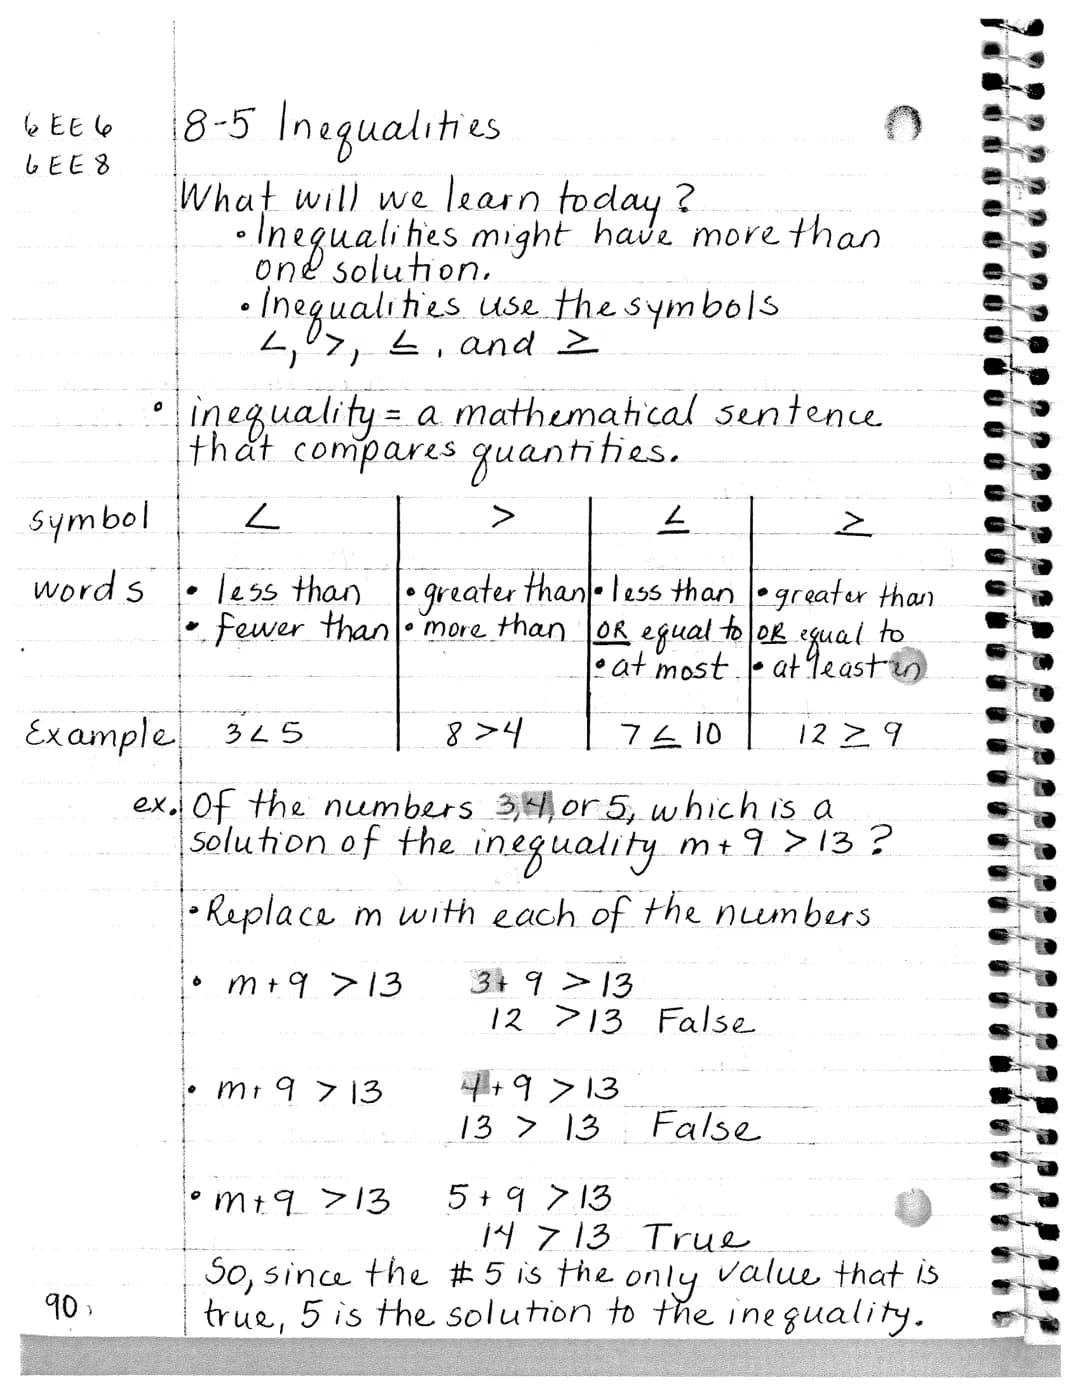 6 EE 6
8-5 Inequalities
6 EE 8
What will we learn today?
• Inequalities might have more than
one solution.
• Inequalities use the symbols
<, >, ≤, and ≥
• inequality = a mathematical sentence
that compares quantities.
symbol < > ≤ ≥
words • less than • greater than • less than • greater than
• fewer than • more than OR equal to OR equal to
• at most • at least
Example 3 < 5 8 > 4 7 ≤ 10 12 ≥ 9
ex. Of the numbers 3, 4, or 5, which is a
solution of the inequality m + 9 > 13?
• Replace m with each of the numbers
• m + 9 > 13 3 + 9 > 13
12 > 13 False
• m + 9 > 13 4 + 9 > 13
13 > 13 False
• m + 9 > 13 5 + 9 > 13
14 > 13 True
So, since the # 5 is the only value that is
true, 5 is the solution to the inequality.
90